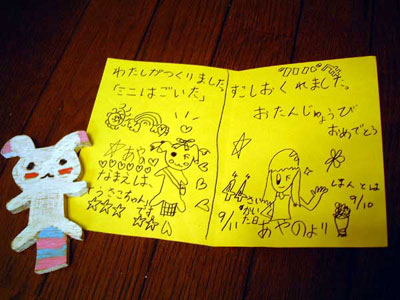 わたしがつくりました。
「ミニはごいた」
なまえは、
「うさこちゃん」
です
すこしおくれました。
おたんじょうび
おめでとう
44さい
かいた日
9/11
ほんとは
9/10
あやのより